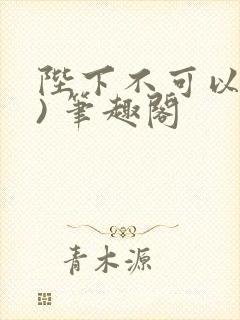 陛下不可以
)筆趣閣
青木源